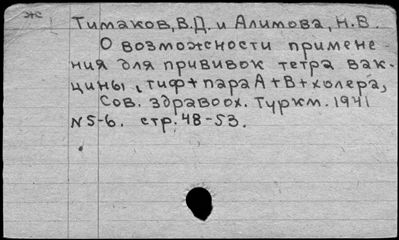 ж
Тимаков, В.Д. и Алимова, Н.В.
О возможности примене
ния для прививок тетра вак-
цины, тиф+пара А+В+холера,
Сов. здравоох. Туркм. 1941
N5-6. стр. 48-53.